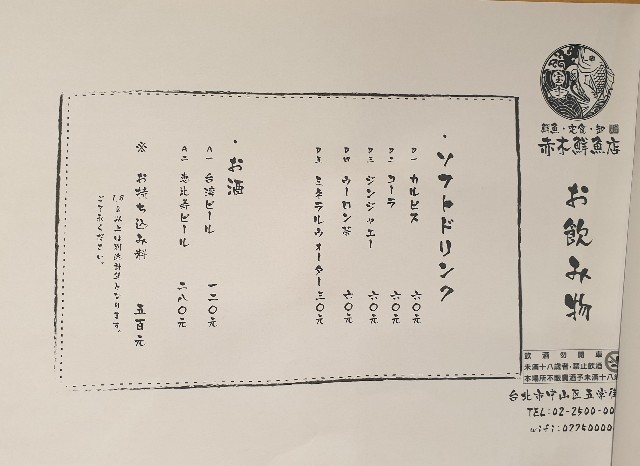 鮮魚・定食・卸
赤木鮮魚店
お飲み物
飲酒勿開車
未滿十八歲者・禁止飲酒
本場所不販賣酒予未滿十八
台北市中山区五常街
TEL:02-2500-00
wifi:02250000
・ソフトドリンク
D一 カルピス 六〇元
D二 コーラ 六〇元
D三 ジンジャエー 六〇元
D四 ウーロン茶 六〇元
D五 ミネラルウォーター 三〇元
・お酒
A一 台湾ビール 一二〇元
A二 恵比寿ビール 二八〇元
※ お持ち込み料 五百元
1,8ℓ以上は別途料金となります。
ご了承ください。